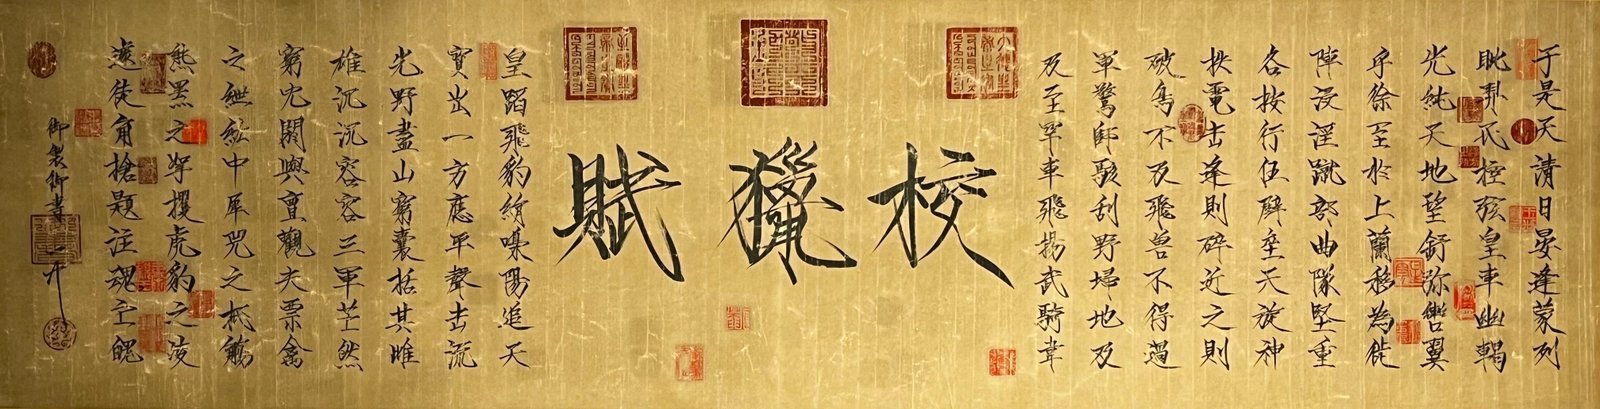 于是天清日晏逢蒙列
眦羿氏控弦皇車幽輵
光純天地望舒弥轡翼
乎徐至於上蘭移為徙
陣浸淫蹴部曲隊堅重
各按行伍壁壘天旋神
抶電击逢則碎近之則
破鳥不及飛兽不得過
軍驚師駭刮野掃地及
及至罕車飛揚武騎聿
校獵賦
皇蹈飛豹絹嘄陽追天
寶出一方應平聲击流
光野盡山窮囊括其雌
雄沉沉容容三軍芒然
窮冘閼與亶觀夫票禽
之紲中犀兕之抵觸
熊羆之挐攫虎豹之凌
遽徒角搶題注魂亡魄
御製御書